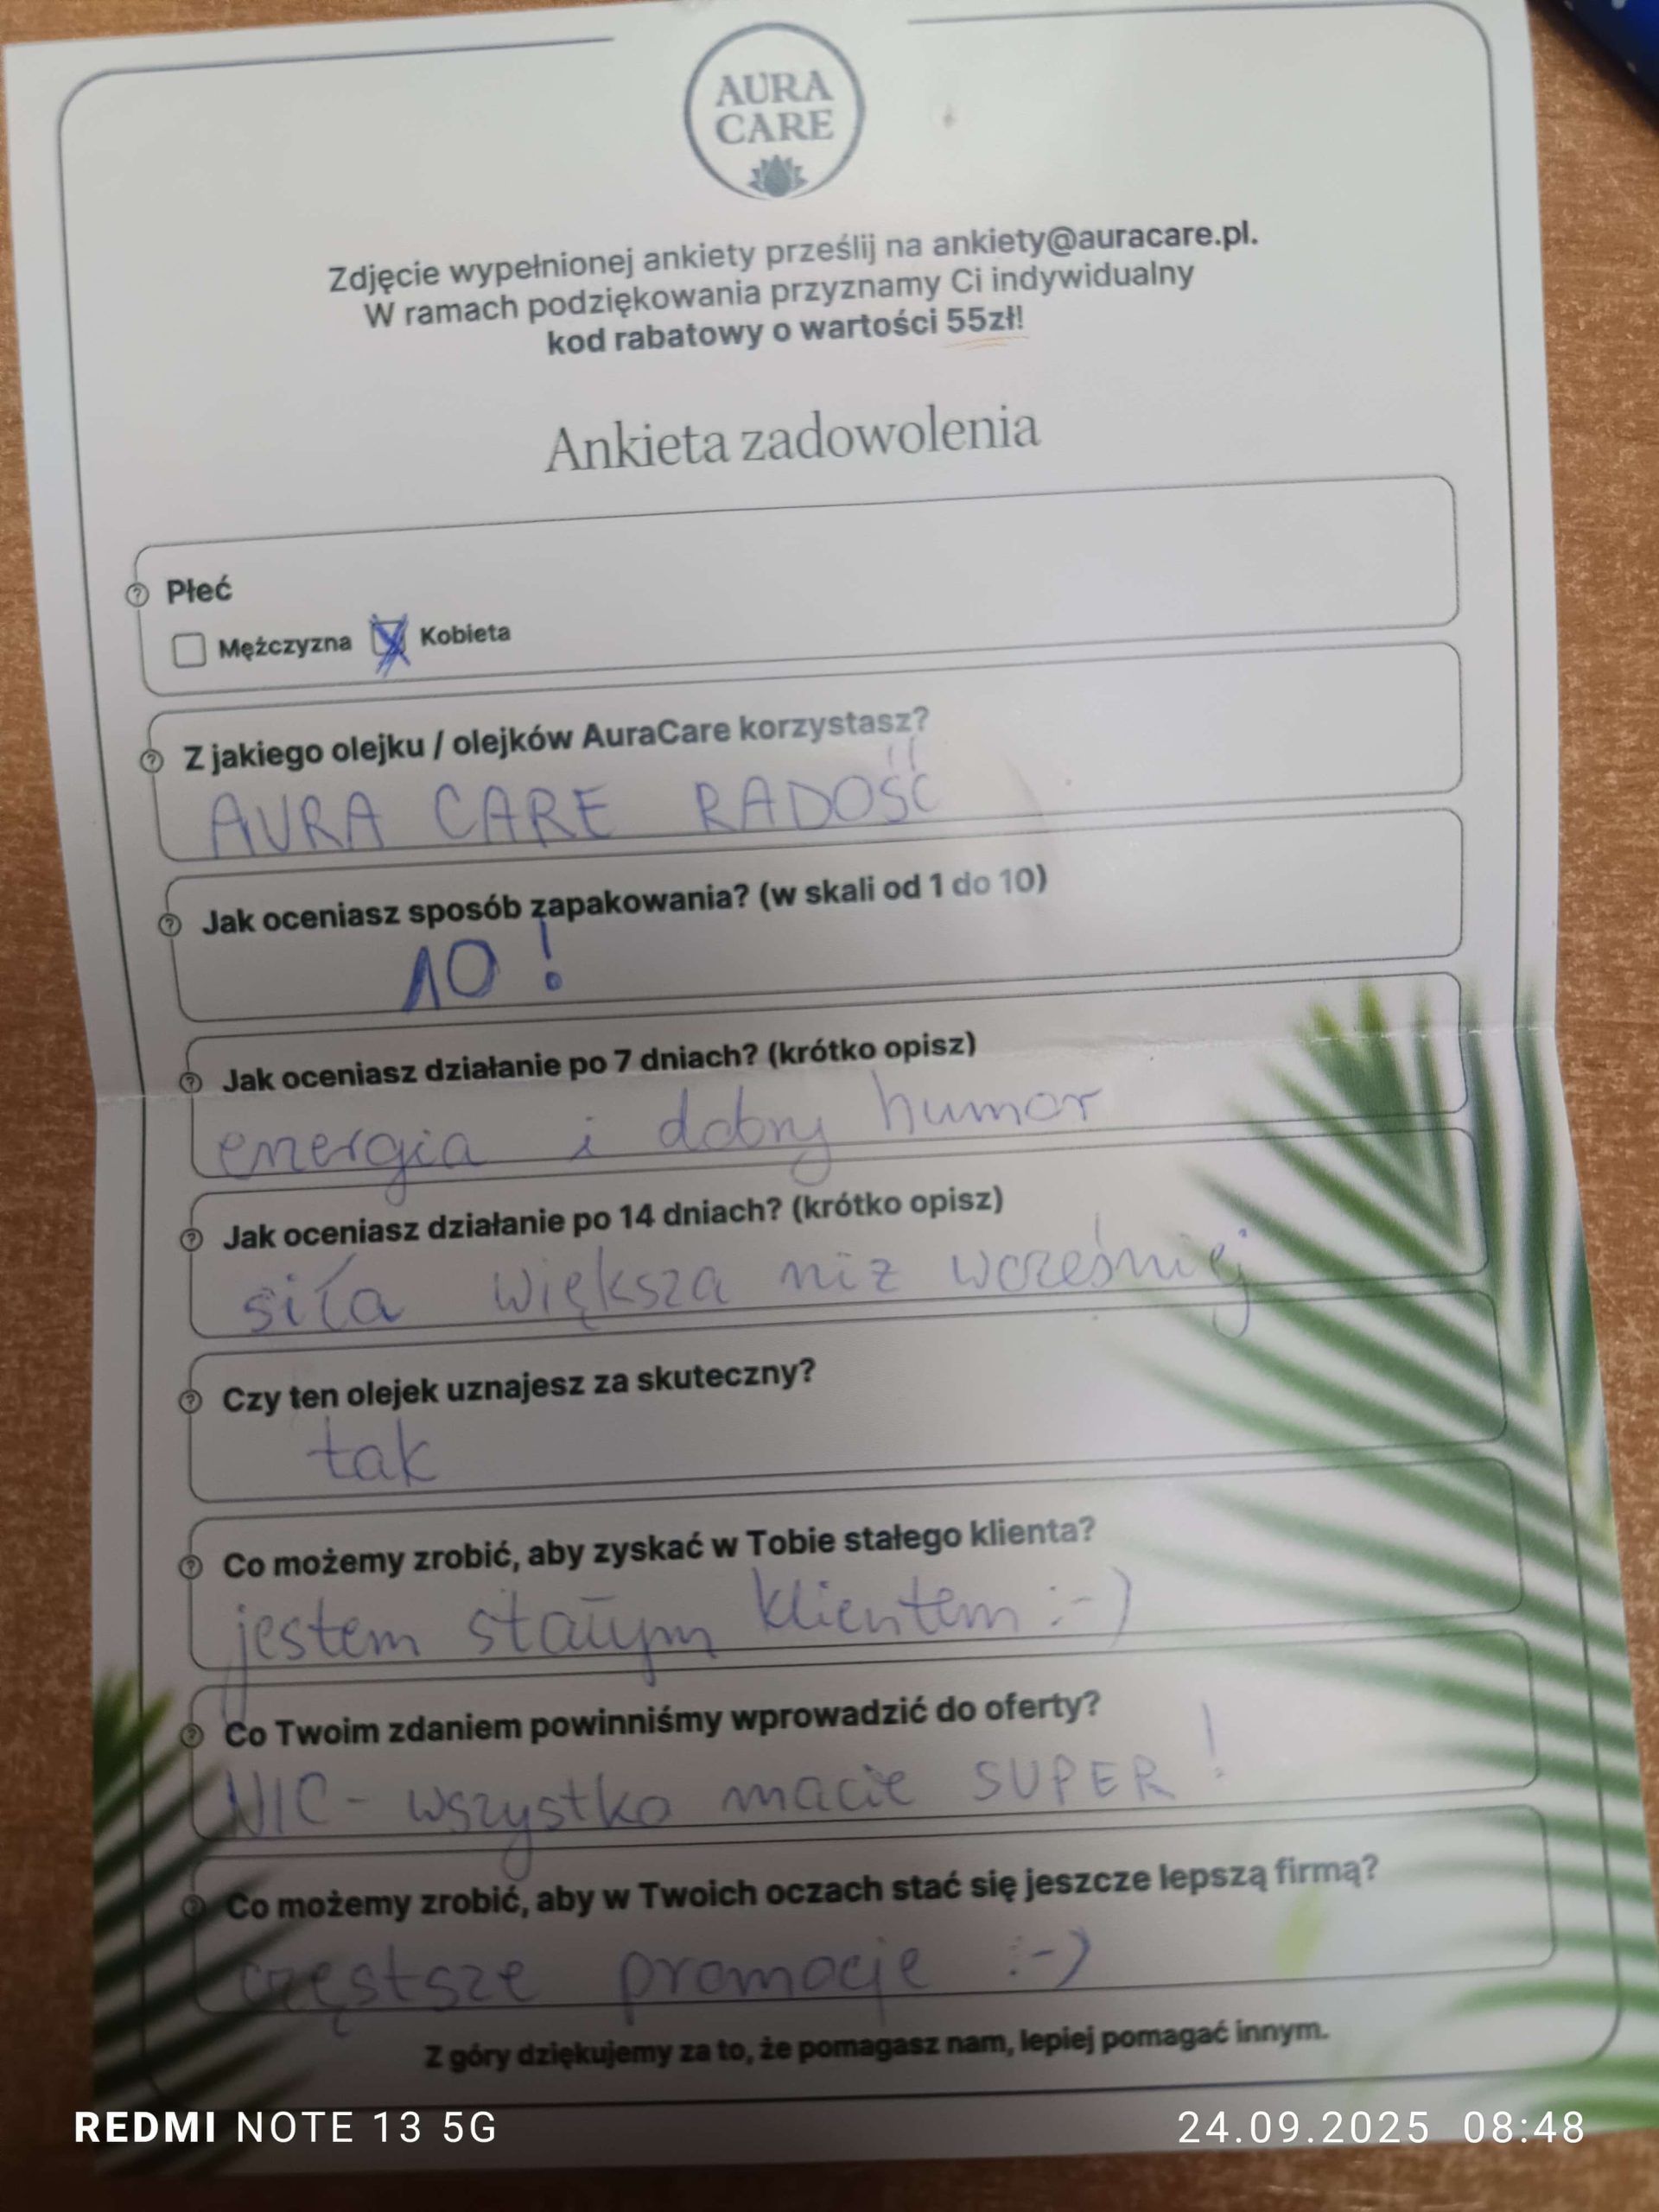 AURA
CARE
Zdjęcie wypełnionej ankiety prześlij na ankiety@auracare.pl.
W ramach podziękowania przyznamy Ci indywidualny
kod rabatowy o wartości 55zł!
Ankieta zadowolenia
Płeć
Mężczyzna Kobieta
Z jakiego olejku / olejków AuraCare korzystasz?
AURA CARE RADOŚĆ
Jak oceniasz sposób zapakowania? (w skali od 1 do 10)
10 !
Jak oceniasz działanie po 7 dniach? (krótko opisz)
energia i dobry humor
Jak oceniasz działanie po 14 dniach? (krótko opisz)
siła większa niż wcześniej
Czy ten olejek uznajesz za skuteczny?
tak
Co możemy zrobić, aby zyskać w Tobie stałego klienta?
jestem stałym klientem :-)
Co Twoim zdaniem powinniśmy wprowadzić do oferty?
NIC - wszystko macie SUPER !
Co możemy zrobić, aby w Twoich oczach stać się jeszcze lepszą firmą?
częstsze promocje :-)
Z góry dziękujemy za to, że pomagasz nam, lepiej pomagać innym.
REDMI NOTE 13 5G
24.09.2025 08:48